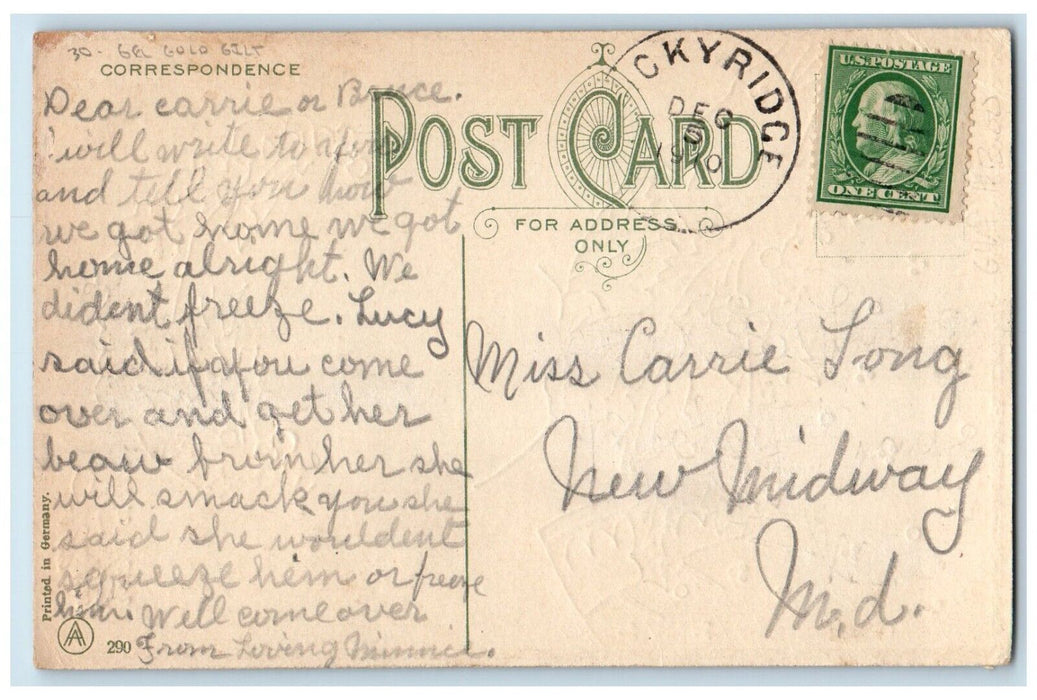 30 - GEL GOLD GILT
CORRESPONDENCE
Dear carrie or Bruce.
i will write to you
and tell you how
we got home we got
home alright. We
dident freeze. Lucy
said if you come
over and get her
beau from her she
will smack you she
said she wouldent
squeeze him or freeze
him. Well come over
From Loving Minnie.
Printed in Germany.
AA
290
POST CARD
FOR ADDRESS
ONLY
CKYRIDGE
DEC
1910
U.S. POSTAGE
ONE CENT
Miss Carrie Long
New Midway
Md.